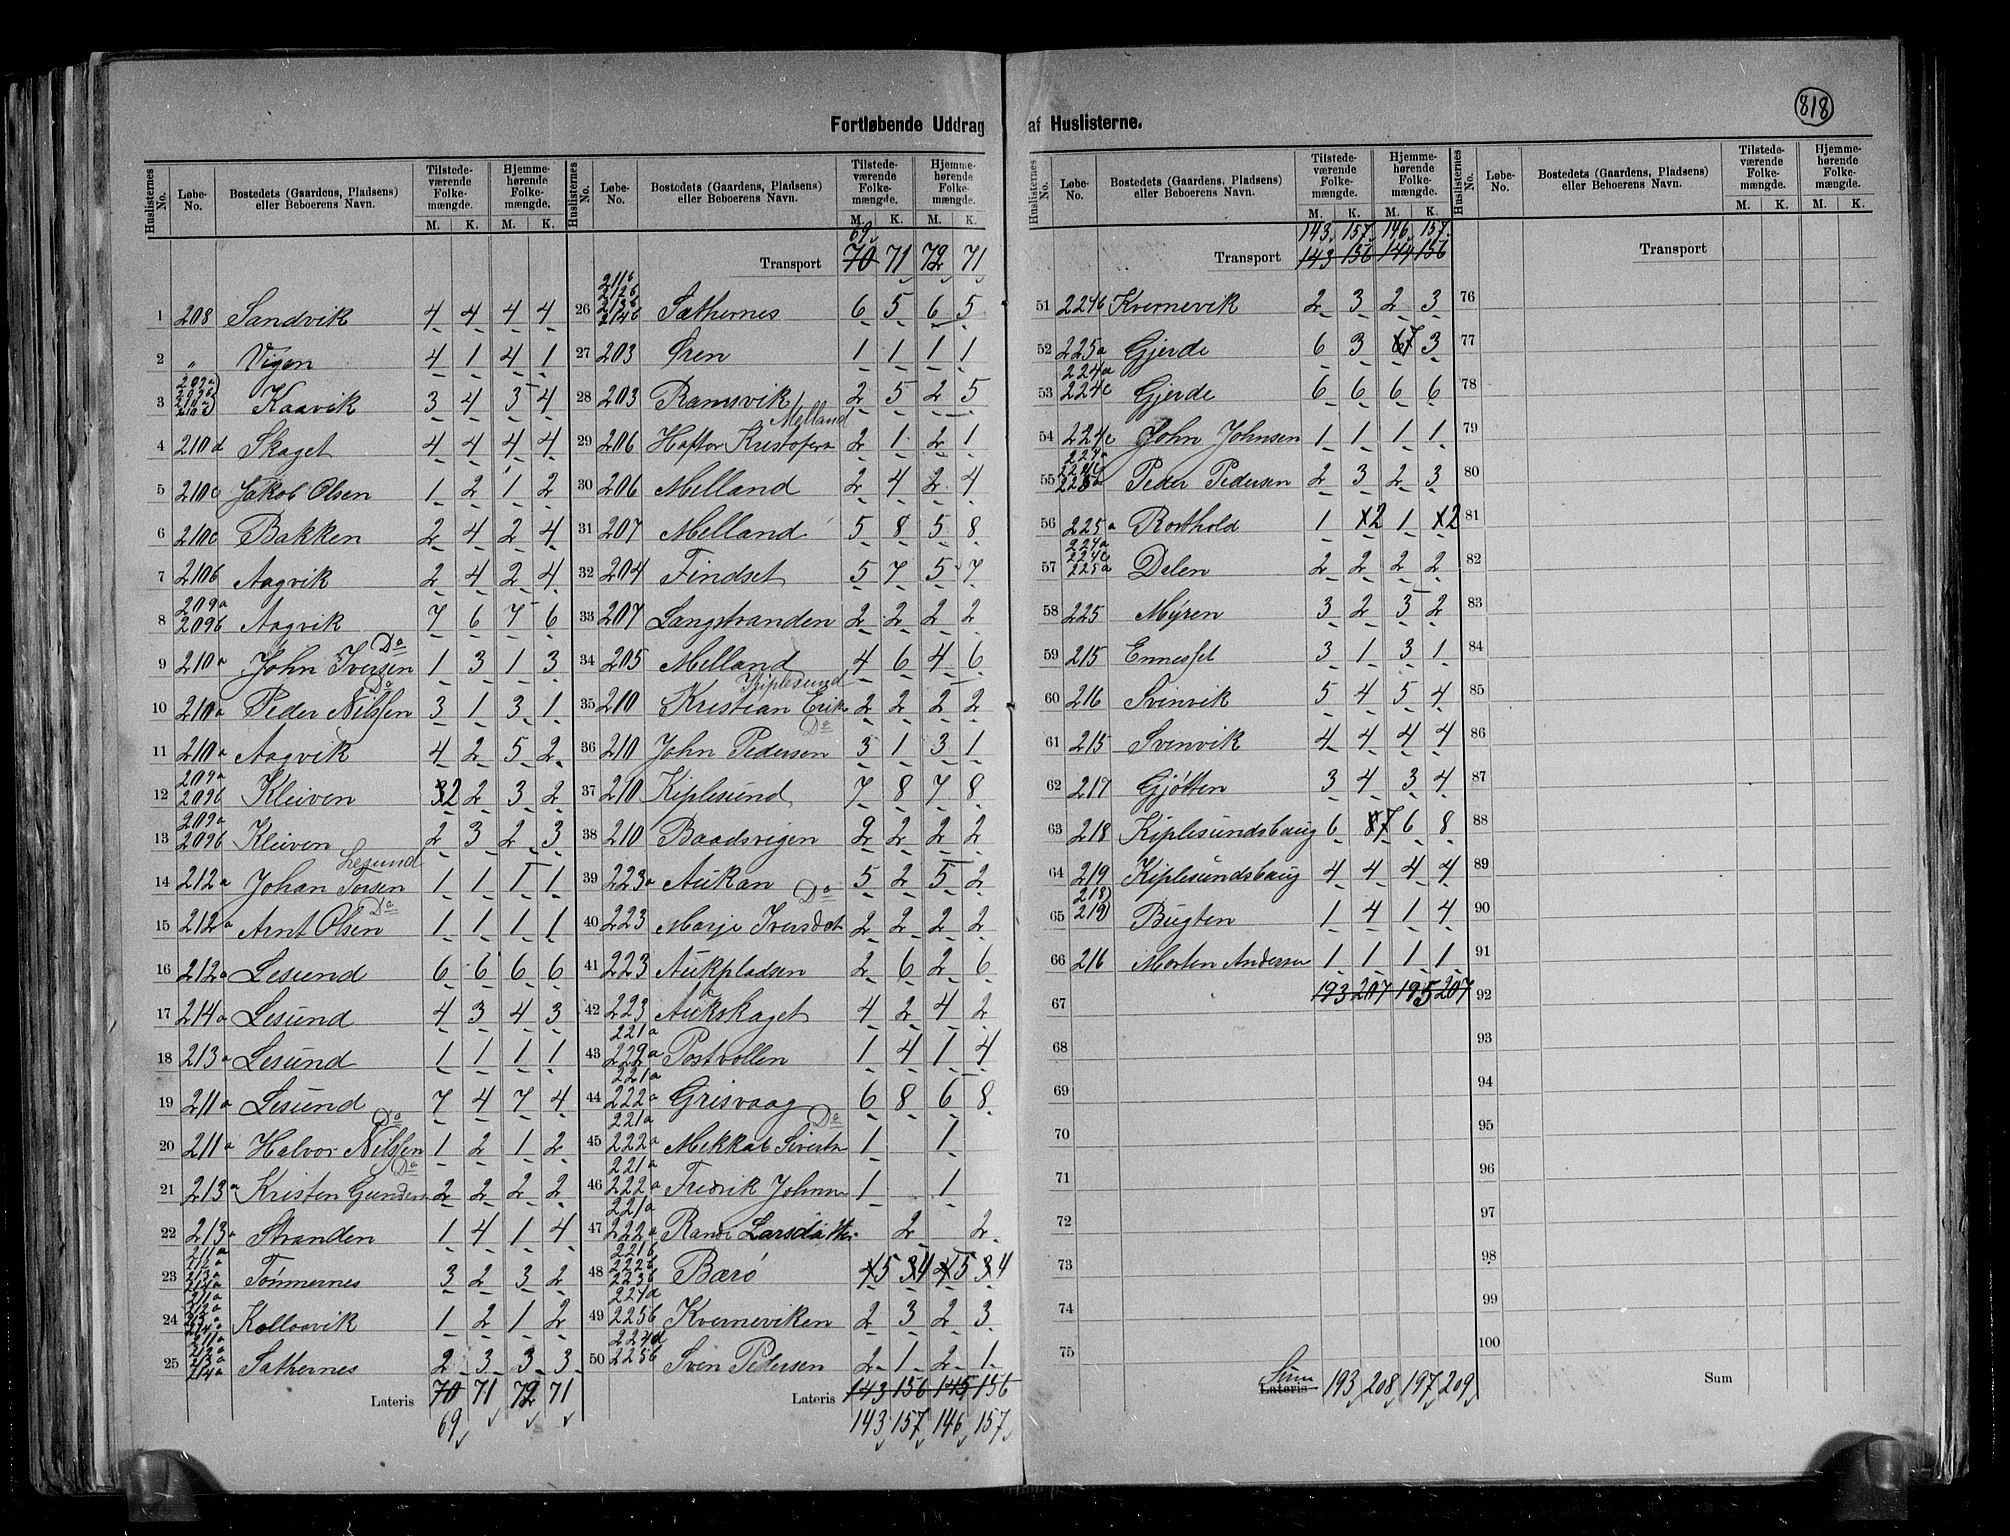 818
Fortløbende Uddrag af Huslisterne.
Huslisternes No. | Løbe-No. | Bostedets (Gaardens, Pladsen) eller Beboerens Navn. | Tilstedeværende Folkemængde. M. K. | Hjemmehørende Folkemængde. M. K.
1 208 Sandvik 4 4 4 4
2 " Vigen 4 1 4 1
3 Kaavik 3 4 3 4
4 210d Skaget 4 4 4 4
5 210c Jakob Olsen 1 2 1 2
6 210c Bakken 2 4 2 4
7 210b Aagvik 2 4 2 4
8 209a 209b Aagvik 7 6 7 6
9 210a John Iversen Do 1 3 1 3
10 210a Peder Nilssen Do 3 1 3 1
11 210a Aagvik 4 2 5 2
12 209a 209b Kleiven 2 2 3 2
13 209a 209b Kleiven 2 3 2 3
14 212a Johan Torsen Lesund 1 1 1 1
15 212a Arnt Olsen Do 1 1 1 1
16 212a Lesund 6 6 6 6
17 214a Lesund 4 3 4 3
18 213a Lesund 1 1 1 1
19 211a Lesund 7 4 7 4
20 211a Halvor Nilssen Do 1 2 1 2
21 213a Kristen Gunders Do 2 2 2 2
22 213a Stranden 1 4 1 4
23 211a 212a 213a 214a Tømmernes 3 2 3 2
24 211a 212a 213a 214a Kollsavik 1 2 1 2
25 211a 212a 213a 214a Sathernes 2 3 3 3
Lateris 70 71 72 71
69
69
Transport 70 71 72 71
26 211b 212b 213b 214b Sathernes 6 5 6 5
27 203 Øren 1 1 1 1
28 203 Ramsvik 2 5 2 5
29 206 Haftor Kristofers Melland 2 1 2 1
30 206 Melland 2 4 2 4
31 207 Melland 5 8 5 8
32 204 Findset 5 7 5 7
33 207 Langstranden 2 2 2 2
34 205 Melland 4 6 4 6
35 210 Kristian Erik Kiplesund 2 2 2 2
36 210 John Pedersen Do 3 1 3 1
37 210 Kiplesund 7 8 7 8
38 210 Baadsvigen 2 2 2 2
39 223a Aukan 5 2 5 2
40 223 Marje Iversdot Do 2 2 2 2
41 223 Aukpladsen 2 6 2 6
42 223 Aukskaget 4 2 4 2
43 221a 222a Postvollen 1 4 1 4
44 221a 222a Grisvaag 6 8 6 8
45 221a 222a Mekkal Sivertn Do 1 1
46 221a 222a Fredrik Johnsn 1 1
47 221a 222a Randi Larsdatter 2 2
48 221b 222b 223b Bærø 5 4 5 4
49 224d 225b Kverneviken 2 3 2 3
50 224d 225b Sven Pedersen 2 1 2 1
Lateris 143 156 145 156
143 157 146 157
143 157 146 157
Transport 143 156 144 156
51 224b Kvernevik 2 3 2 3
52 225a Gjerde 6 3 7 3
53 224a 224c Gjerde 6 6 6 6
54 224c John Johnsen 1 1 1 1
55 224a 224c 225a Peder Pedersen 2 3 2 3
56 225a Rosthold 1 2 1 2
57 224a 224c 225a Dalen 2 2 2 2
58 225 Myren 3 2 3 2
59 215 Ennesset 3 1 3 1
60 216 Svinvik 5 4 5 4
61 215 Svinvik 4 4 4 4
62 217 Gjøtten 3 4 3 4
63 218 Kiplesundshaug 6 7 6 8
64 219 Kiplesundshaug 4 4 4 4
65 218 219 Bugten 1 4 1 4
66 216 Morten Anderse 1 1 1 1
67 193 207 195 207
68
69
70
71
72
73
74
75
Sum Lateris 193 208 197 209
Transport
76
77
78
79
80
81
82
83
84
85
86
87
88
89
90
91
92
93
94
95
96
97
98
99
100
Sum